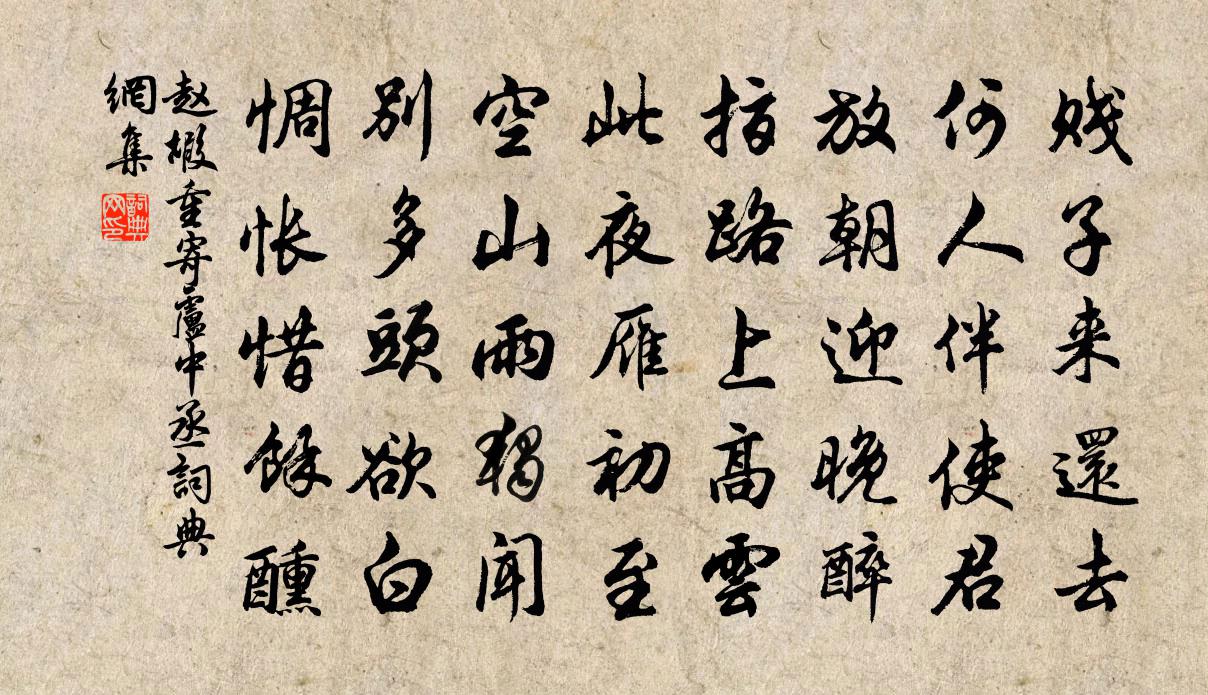 贱子来還去
何人伴使君
放朝迎晚醉
指路上高雲
此夜雁初至
空山雨獨聞
别多頭欲白
惆怅惜餘醺
赵嘏重寄盧中丞詞典
網集
詞典
网印